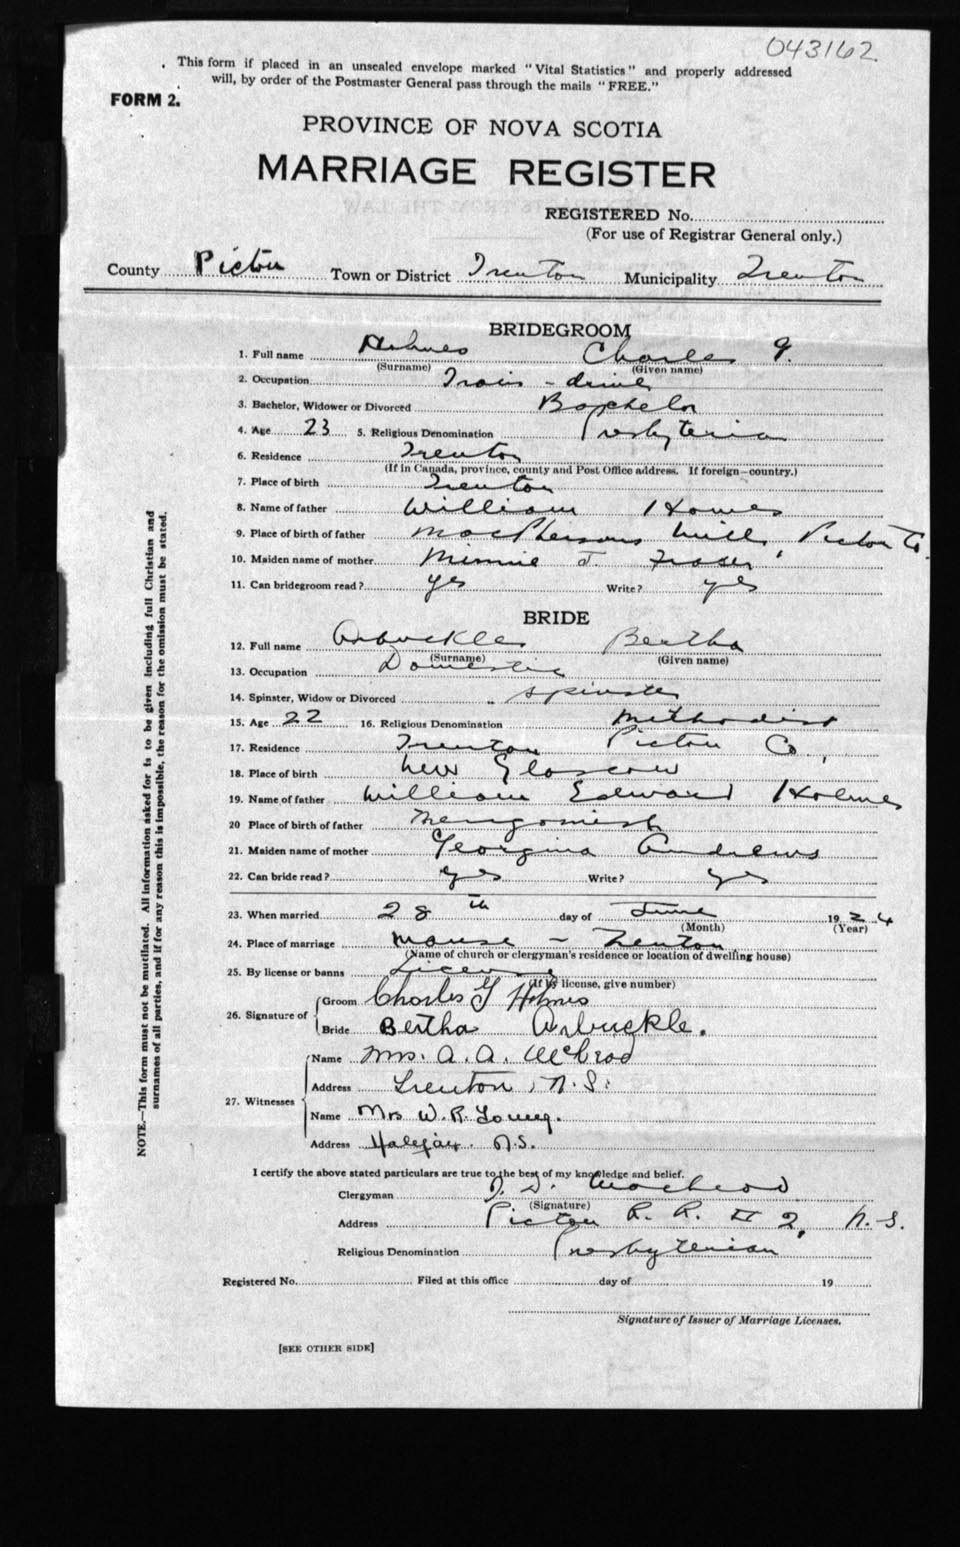 043162
This form if placed in an unsealed envelope marked "Vital Statistics" and properly addressed
will, by order of the Postmaster General pass through the mails "FREE."
FORM 2.
PROVINCE OF NOVA SCOTIA
MARRIAGE REGISTER
REGISTERED No.
(For use of Registrar General only.)
County Pictou Town or District Trenton Municipality Trenton
BRIDEGROOM
1. Full name Holmes Charles G.
(Surname) (Given name)
2. Occupation
3. Bachelor, Widower or Divorced Bachelor
4. Age 23 5. Religious Denomination Presbyterian
6. Residence Trenton
(If in Canada, province, county and Post Office address. If foreign—country.)
7. Place of birth Trenton
8. Name of father William Holmes
9. Place of birth of father MacPhersons Mills, Pictou Co.
10. Maiden name of mother Minnie J Fraser
11. Can bridegroom read? yes Write? yes
BRIDE
12. Full name Arbuckle Bertha
(Surname) (Given name)
13. Occupation Domestic
14. Spinster, Widow or Divorced spinster
15. Age 22 16. Religious Denomination Methodist
17. Residence Trenton Pictou Co,
18. Place of birth New Glasgow
19. Name of father William Edward Holmes
20 Place of birth of father Merigomish
21. Maiden name of mother Georgina Andrews
22. Can bride read? yes Write? yes
23. When married 28th day of June 1924
(Month) (Year)
24. Place of marriage Manse - Trenton
(Name of church or clergyman's residence or location of dwelling house)
25. By license or banns License
(If by license, give number)
26. Signature of Groom Charles G Holmes
Bride Bertha Arbuckle.
27. Witnesses
Name Mrs. A. A. McLeod
Address Trenton, N.S.
Name Mrs W. R. Young.
Address Halifax. N.S.
I certify the above stated particulars are true to the best of my knowledge and belief.
Clergyman MacLeod
(Signature)
Address Pictou R. R. # 2, N.S.
Religious Denomination Presbyterian
Registered No. Filed at this office day of 19
Signature of Issuer of Marriage Licenses.
[SEE OTHER SIDE]
NOTE.—This form must not be mutilated. All information asked for is to be given including full Christian and
surnames of all parties, and if for any reason this is impossible, the reason for the omission must be stated.